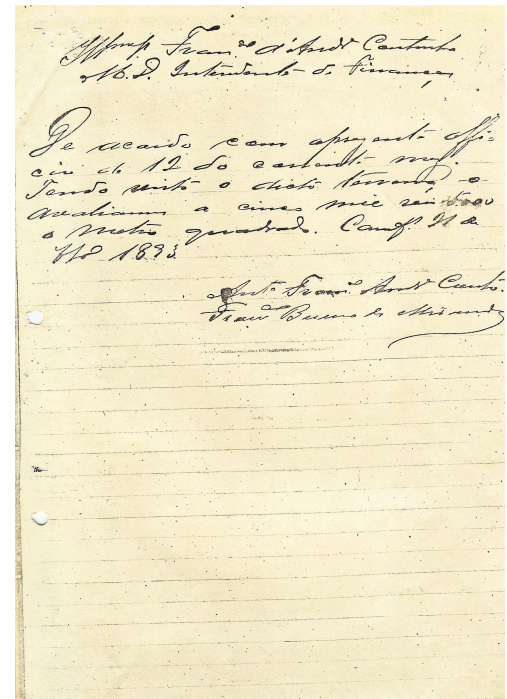 Illmo Sr. Franco. d'Andr. Coutinho
M. D. Intendente de Finanças,
De acordo com apresente offi-
cio de 12 do corrente mez
Tendo visto o dicto terreno, o
avaliamos a cinco mil reis
o metro quadrado. Campa. 21 de
1893
Anto. Franco. Andr. Coutº.
Franco. Bueno de Miranda